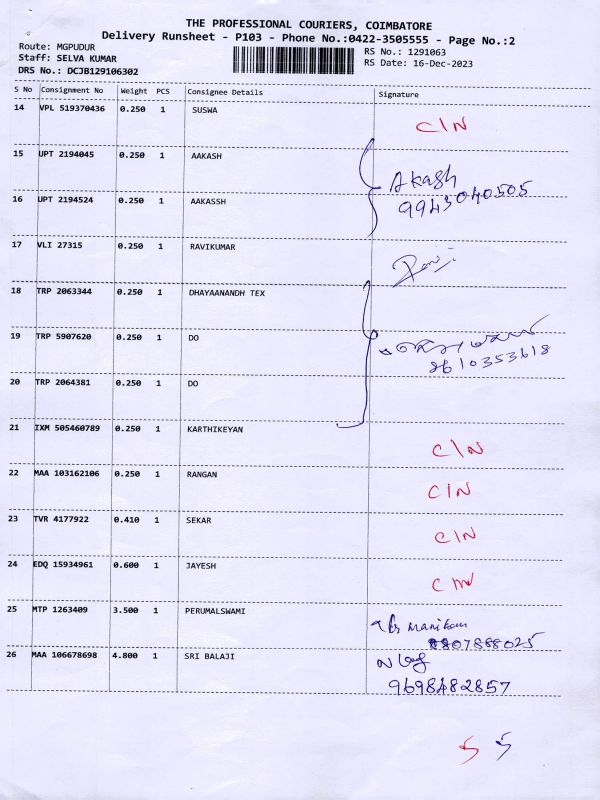 THE PROFESSIONAL COURIERS, COIMBATORE
Delivery Runsheet - P103 - Phone No.:0422-3505555 - Page No.:2
Route: MGPUDUR
RS No.: 1291063
Staff: SELVA KUMAR
RS Date: 16-Dec-2023
DRS No.: DCJB129106302
S No Consignment No Weight PCS Consignee Details Signature
14 VPL 519370436 0.250 1 SUSWA C/N
15 UPT 2194045 0.250 1 AAKASH
Akash
16 UPT 2194524 0.250 1 AAKASSH 9943040505
17 VLI 27315 0.250 1 RAVIKUMAR
18 TRP 2063344 0.250 1 DHAYAANANDH TEX
19 TRP 5907620 0.250 1 DO
8610353618
20 TRP 2064381 0.250 1 DO
21 IXM 505460789 0.250 1 KARTHIKEYAN C/N
22 MAA 103162106 0.250 1 RANGAN C/N
23 TVR 4177922 0.410 1 SEKAR C/N
24 EDQ 15934961 0.600 1 JAYESH
25 MTP 1263409 3.500 1 PERUMALSWAMI
26 MAA 106678698 4.800 1 SRI BALAJI
9698482857
5 5